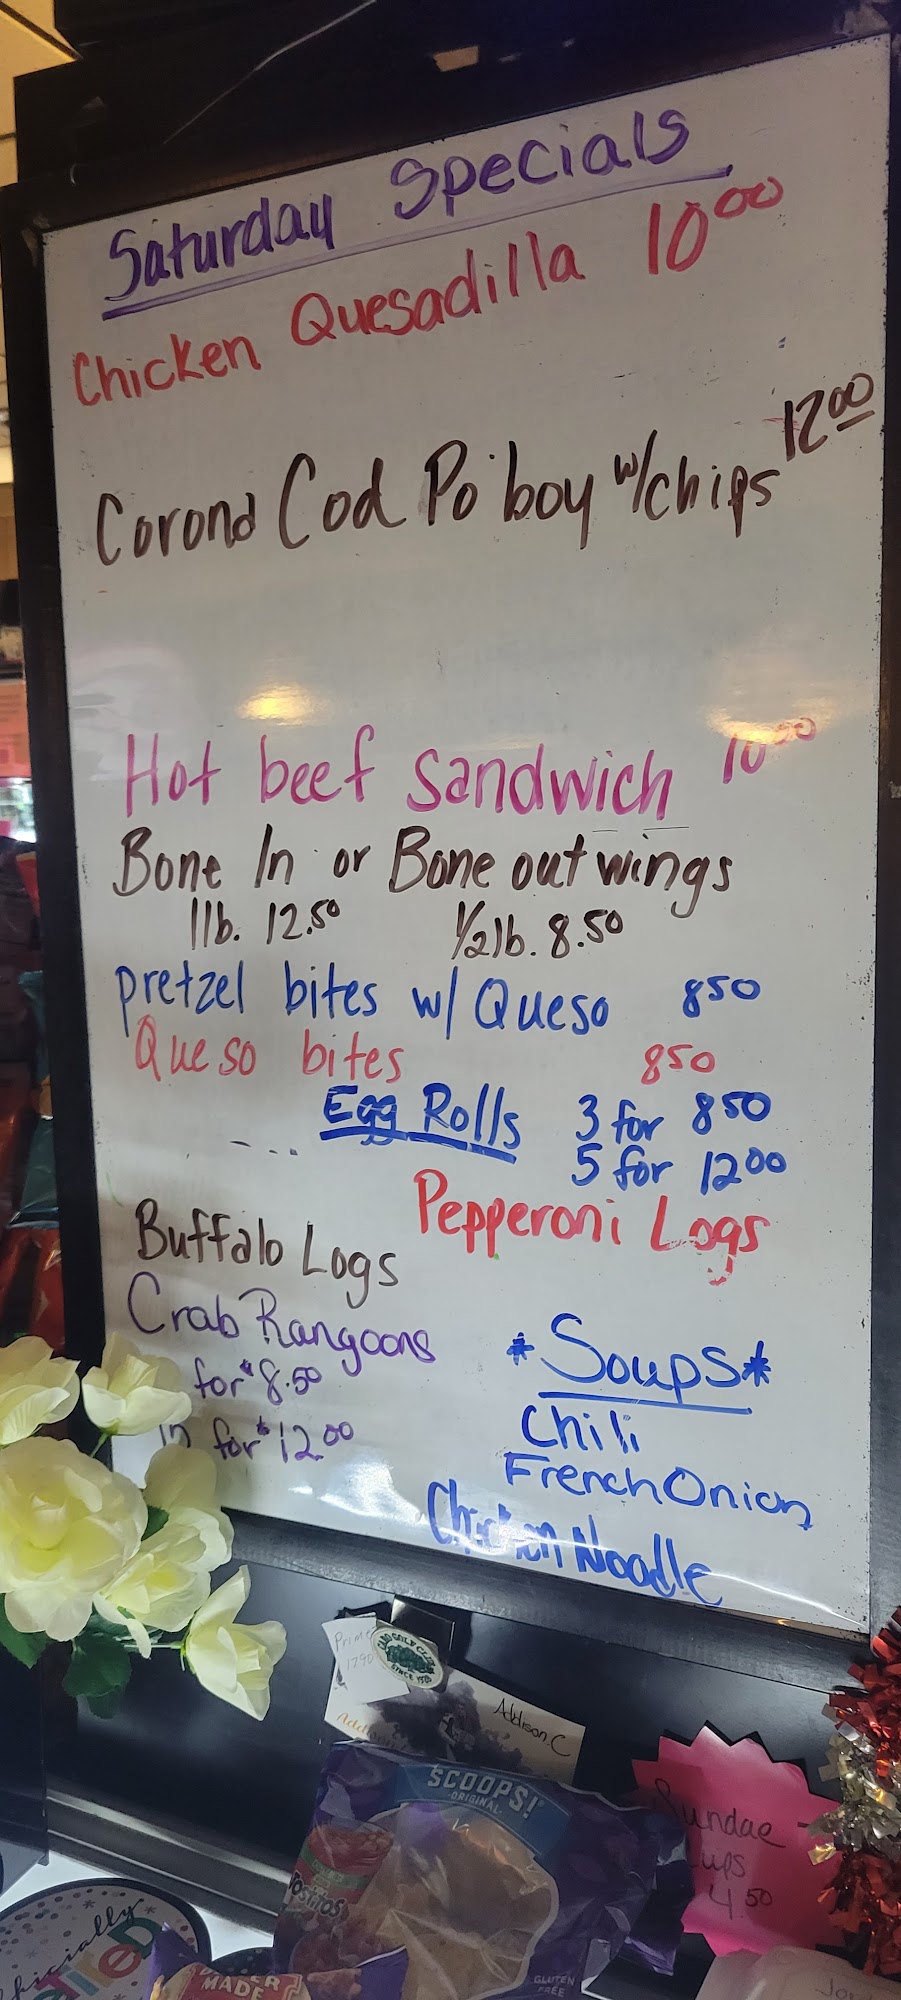 Saturday Specials
Chicken Quesadilla 10⁰⁰
Corona Cod Po'boy w/chips 12⁰⁰
Hot beef Sandwich 10⁰⁰
Bone In or Bone out wings
1lb. 12.⁵⁰ 1/2lb. 8.50
pretzel bites w/ Queso 850
Queso bites 850
Egg Rolls 3 for 850
5 for 12⁰⁰
Pepperoni Logs
Buffalo Logs
Crab Rangoons
for $8.50
for $12⁰⁰
*Soups*
Chili
French Onion
Chicken Noodle
Prime
1790
SINCE
Addison C
SCOOPS!
ORIGINAL
TOSTITOS
GLUTEN
FREE
Sundae
4⁵⁰
MADE